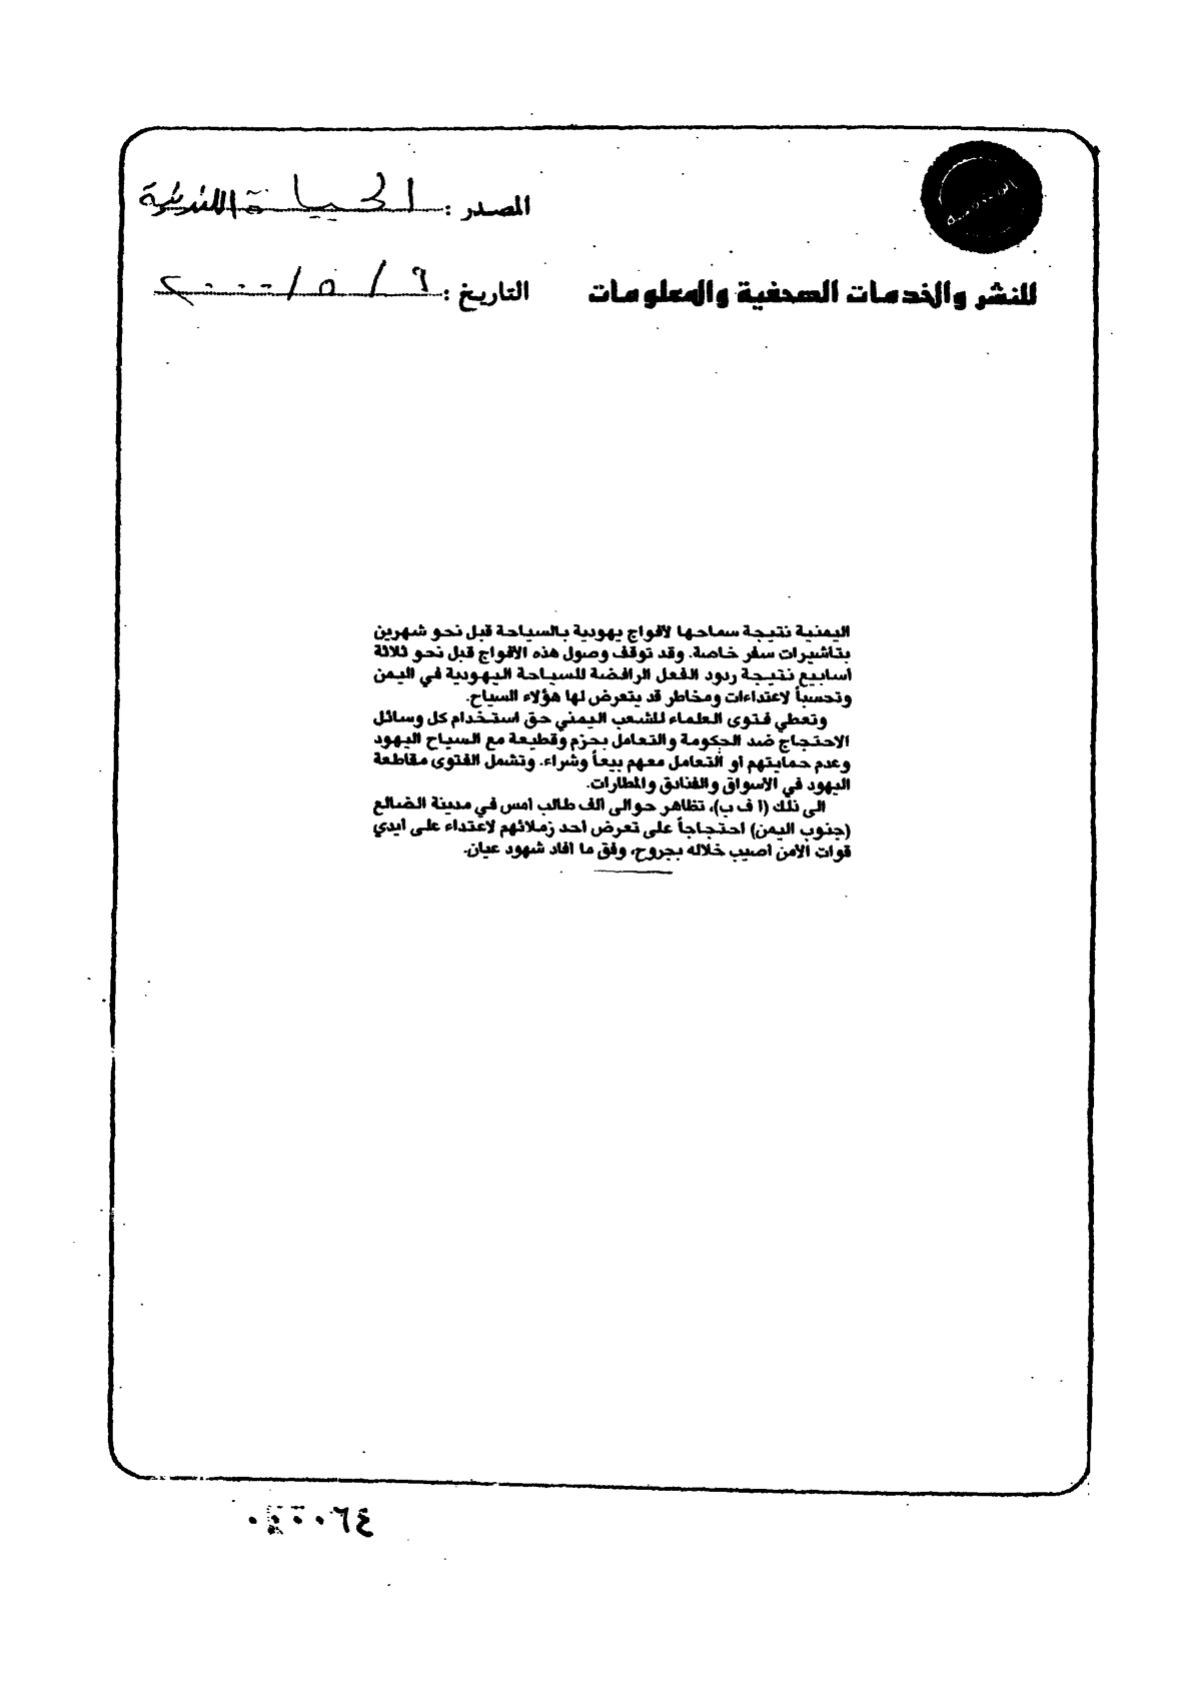 المصدر : الحياة اللندنية
للنشر والخدمات الصحفية والمعلومات
التاريخ : ٦ / ٥ / ٢٠٠٠
اليمنية نتيجة سماحها لأفواج يهودية بالسياحة قبل نحو شهرين
بتأشيرات سفر خاصة. وقد توقف وصول هذه الأفواج قبل نحو ثلاثة
أسابيع نتيجة ردود الفعل الرافضة للسياحة اليهودية في اليمن
وتحسباً لاعتداءات ومخاطر قد يتعرض لها هؤلاء السياح.
وتعطي فتوى العلماء للشعب اليمني حق استخدام كل وسائل
الاحتجاج ضد الحكومة والتعامل بحزم وقطيعة مع السياح اليهود
وعدم حمايتهم أو التعامل معهم بيعاً وشراء. وتشمل الفتوى مقاطعة
اليهود في الأسواق والفنادق والمطارات.
الى ذلك (ا ف ب)، تظاهر حوالى ألف طالب أمس في مدينة الضالع
(جنوب اليمن) احتجاجاً على تعرض أحد زملائهم لاعتداء على أيدي
قوات الأمن أصيب خلاله بجروح، وفق ما أفاد شهود عيان.